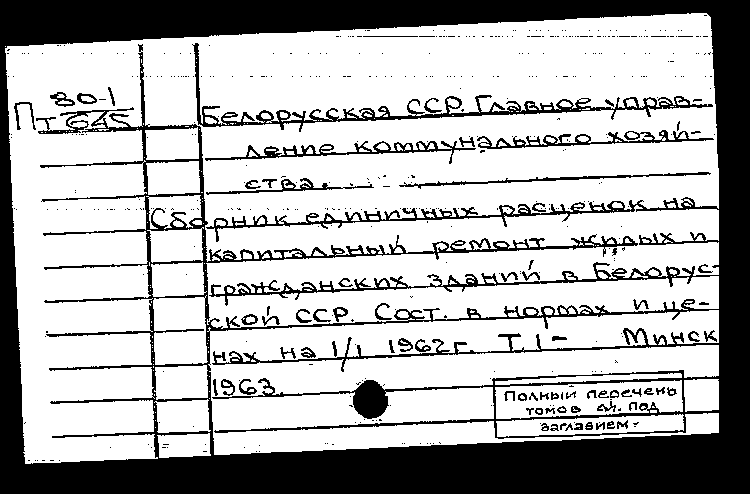 80-1
Пт 645
Белорусская ССР. Главное управ-
ление коммунального хозяй-
ства.
Сборник единичных расценок на
капитальный ремонт жилых и
гражданских зданий в Белорус-
ской ССР. Сост. в нормах и це-
нах на 1/I 1962 г. Т. I - Минск
1963.
Полный перечень
томов см. под
заглавием.